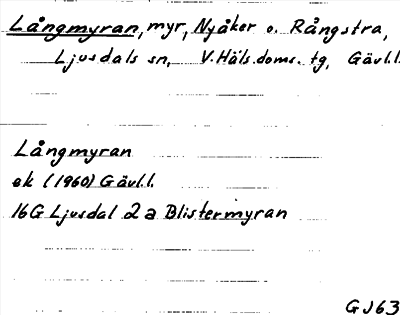 Långmyran, myr, Nyåker o. Rångstra,
Ljusdals sn, V. Häls. doms. tg, Gävl.l.
Långmyran
ek (1960) Gävl.l.
16G Ljusdal 2 a Blistermyran
GJ63